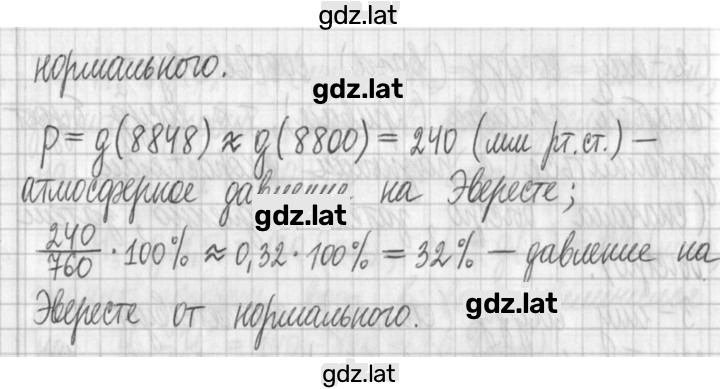 gdz.lat
нормального.
gdz.lat
p = g(8848) ≈ g(8800) = 240 (мм рт.ст.) —
атмосферное давление на Эвересте;
gdz.lat
240/760 · 100% ≈ 0,32 · 100% = 32% — давление на
gdz.lat
Эвересте от нормального.
gdz.lat